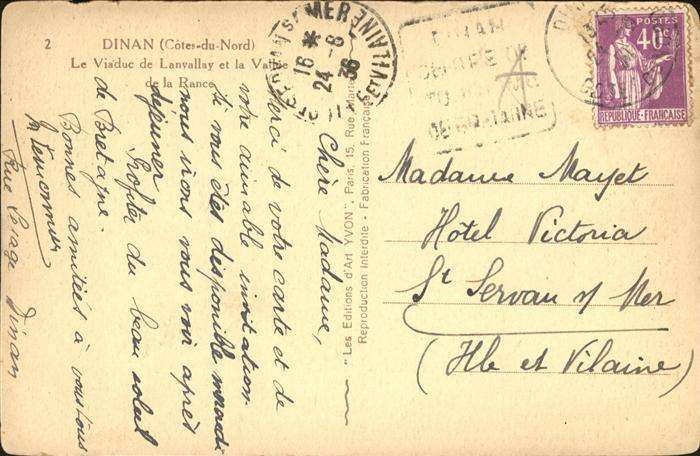 2 DINAN (Côtes-du-Nord)
Le Viaduc de Lanvallay et la Vallée
de la Rance
Chère Madame,
Merci de votre carte et de
votre aimable invitation.
Si vous êtes disponible mercredi
nous irons vous voir après
déjeuner
Profiter du beau soleil
de Bretagne.
Bonnes amitiés à vous tous
Rue Lesage Dinan
"Les Editions d'Art YVON", Paris, 15, Rue
Reproduction Interdite - Fabrication Française
ST SERVAN S MER
ILLE ET VILAINE
16 *
24 - 8
36
DINAN
CENTRE DE
TOURISME
DE BRETAGNE
POSTES
40c
REPUBLIQUE FRANÇAISE
Madame Mayet
Hôtel Victoria
St Servan s/ Mer
(Ille et Vilaine)